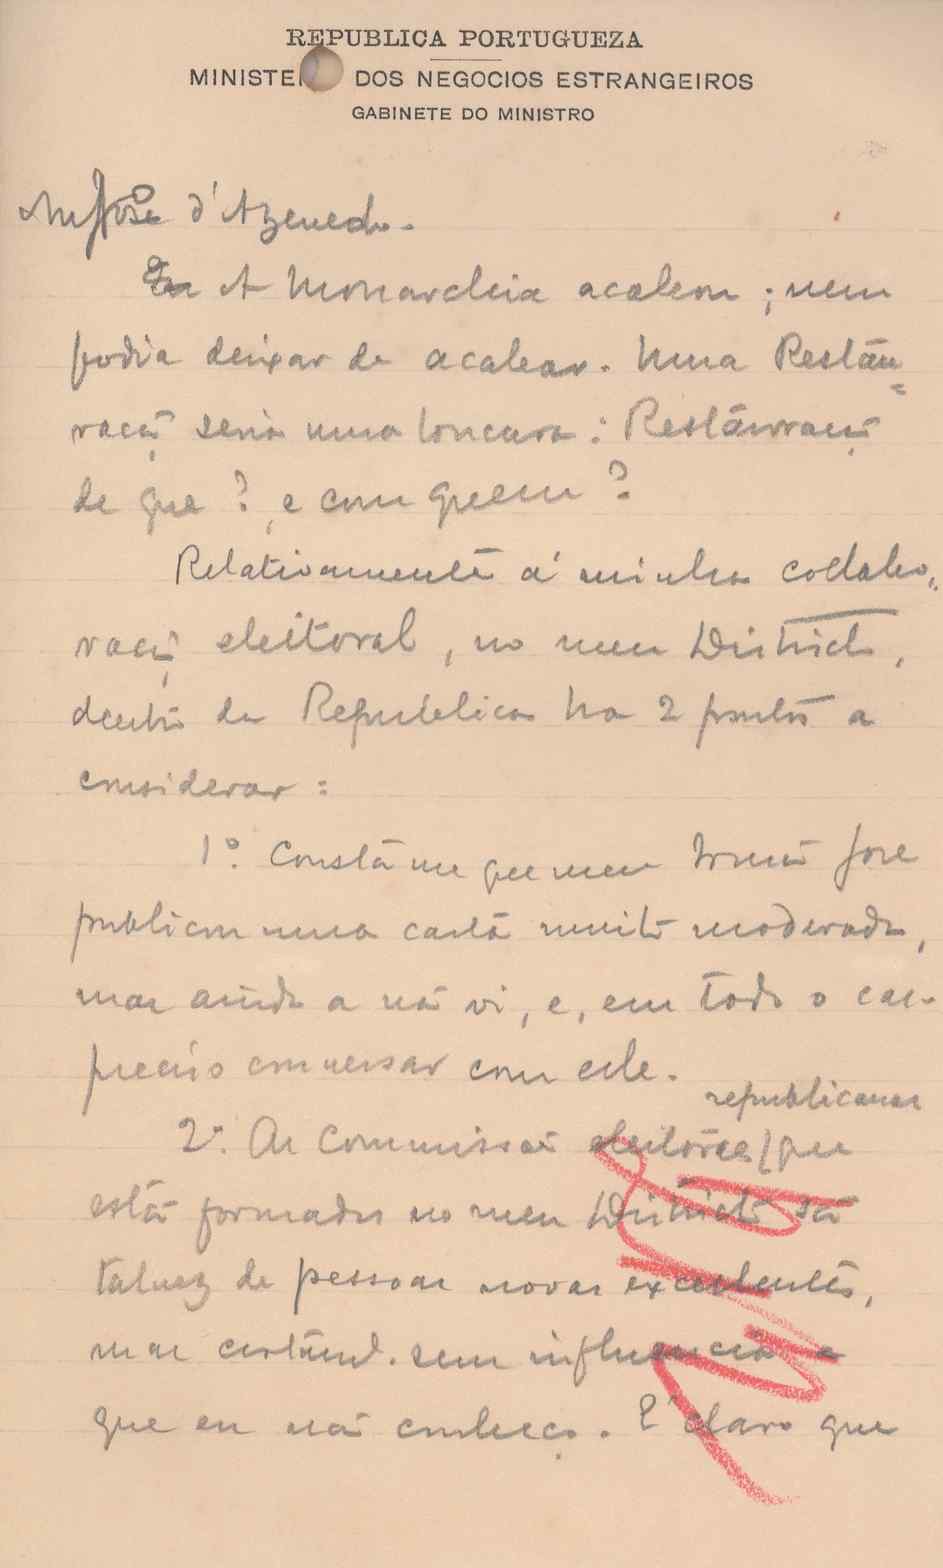 REPUBLICA PORTUGUEZA
MINISTE DOS NEGOCIOS ESTRANGEIROS
GABINETE DO MINISTRO
José d'Azevedo.
A Monarchia acabou ; nem
podia deixar de acabar. Uma Restau=
ração seria uma loucura : Restauração
de que ? e com quem ?
Relativamente á minha collabo=
ração eleitoral, no meu Districto,
dentro da Republica ha 2 pontos a
considerar :
1º. Consta me que meu Irmão José
publicou uma carta muito moderada,
mas ainda a não vi, e, em todo o caso
preciso conversar com elle.
republicanas
2º. As Commissões eleitoraes que
estão formadas no meu Districto são
talvez de pessoas novas excellentes,
mas certamte. sem influencia e
que eu não conheço. É claro que